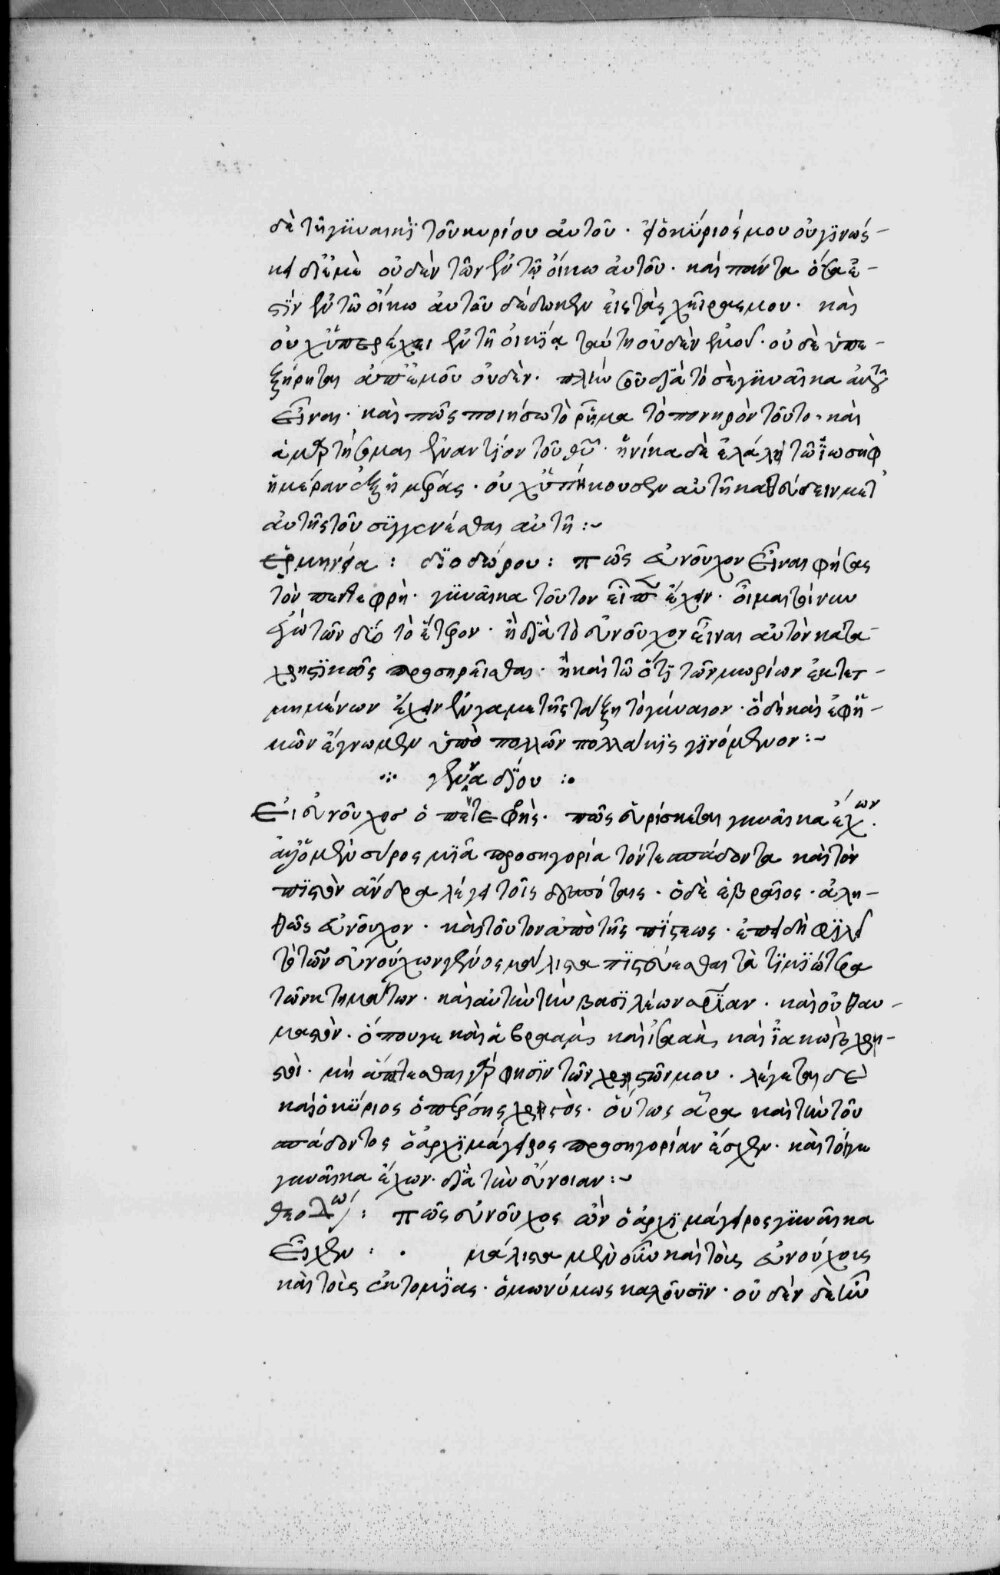 δὲ τῆ γυναικὶ τοῦ κυρίου αὐτοῦ · εἰ ὁ κύριός μου οὐ γινώς-
κει δι' ἐμὲ οὐδὲν τῶν ἐν τῶ οἴκω αὐτοῦ · καὶ πάντα ὅσα ἐ-
σϊν ἐν τῶ οἴκω αὐτοῦ δέδωκεν εἰς τὰς χεῖρας μου · καὶ
οὐχ ὑπερέχει ἐν τῆ οἰκΐα ταύτη οὐδὲν ἐμοῦ · οὐδὲ ὑπε-
ξήρηται ἀπ' ἐμοῦ οὐδὲν · πλὴν σοῦ διὰ τὸ σὲ γυναῖκα αὐτοῦ
εἶναι · καὶ πῶς ποιήσω τὸ ρῆμα τὸ πονηρὸν τοῦτο · καὶ
ἁμαρτήσομαι ἐναντΐον τοῦ θῦ · ἡνίκα δὲ ἐλάλει τῶ ἰωσὴφ
ἡμέραν ἐξ ἡμέρας · οὐχ ὑπήκουσεν αὐτῆ καθεύδειν μετ'
αὐτῆς τοῦ συγγενέσθαι αὐτῆ :~
ἑρμηνεία : διοδώρου : πῶς εὐνοῦχον εἶναι φήσας
τὸν πεντεφρῆ · γυναῖκα τοῦτον εἶπεν ἔχειν · οἶμαι τοίνυν
ἐκ τῶν δύο τὸ ἕτερον · ἢ διὰ τὸ εὐνοῦχον εἶναι αὐτὸν κατα-
χρηστϊκῶς προσηρεῖσθαι · ἢ καὶ τῶ ὅτϊ τῶν μορίων ἐκτετ-
μημένων ἔχειν ἐν γαμετῆς τάξει τὸ γύναιον · ὃ δὴ καὶ ἐφ' ἡ-
μῶν ἔγνωμεν ὑπὸ πολλῶν πολλάκϊς γϊνόμενον :~
∴ γενναδΐου :·
Εἰ εὐνοῦχοσ ὁ πετεφρῆς · πῶς εὑρίσκεται γυναῖκα ἔχων ·
ὁ μὲν σύρος μϊᾶ προσηγορία τόν τε σπάδοντα καὶ τὸν
πϊστὸν ἄνδρα λέγει τοῖς δεσπόταις · ὁ δὲ ἑβραῖος · ἀλη-
θῶς εὐνοῦχον · καὶ τοῦτον ἀπὸ τῆς πΐστεως · ἐπειδὴ φιλεῖ
τὸ τῶν εὐνούχων γένος μάλιστα πϊστεύεσθαι τὰ τϊμϊώτερα
τῶν κτημάτων · καὶ αὐτὴν τὴν βασϊλέων οἰκΐαν · καὶ οὐ θαυ-
μαστὸν · ὅπου γε καὶ ἀβραὰμ καὶ ἰσαὰκ καὶ ἰακὼβ χρι-
στοὶ · μὴ ἅπτεσθαι γάρ φησϊν τῶν χριστῶν μου · λέγεται δὲ
καὶ ὁ κύριος ὁ πέρσης χριστὸς · οὕτως ἄρα καὶ τὴν τοῦ
σπάδοντος ὁ ἀρχϊμάγειρος προσηγορίαν ἔσχεν · καὶ τόι γε
γυναῖκα ἔχων · διὰ τὴν εὔνοιαν :~
θεοδώ : πῶς εὐνοῦχος ὢν ὁ ἀρχϊμάγειρος γυναῖκα
εἶχεν : · μάλιστα μὲν οὖν καὶ τοὺς εὐνούχους
καὶ τοὺς ἐκτομΐας · ὁμωνύμως καλοῦσϊν · οὐδὲν δὲ ἦν